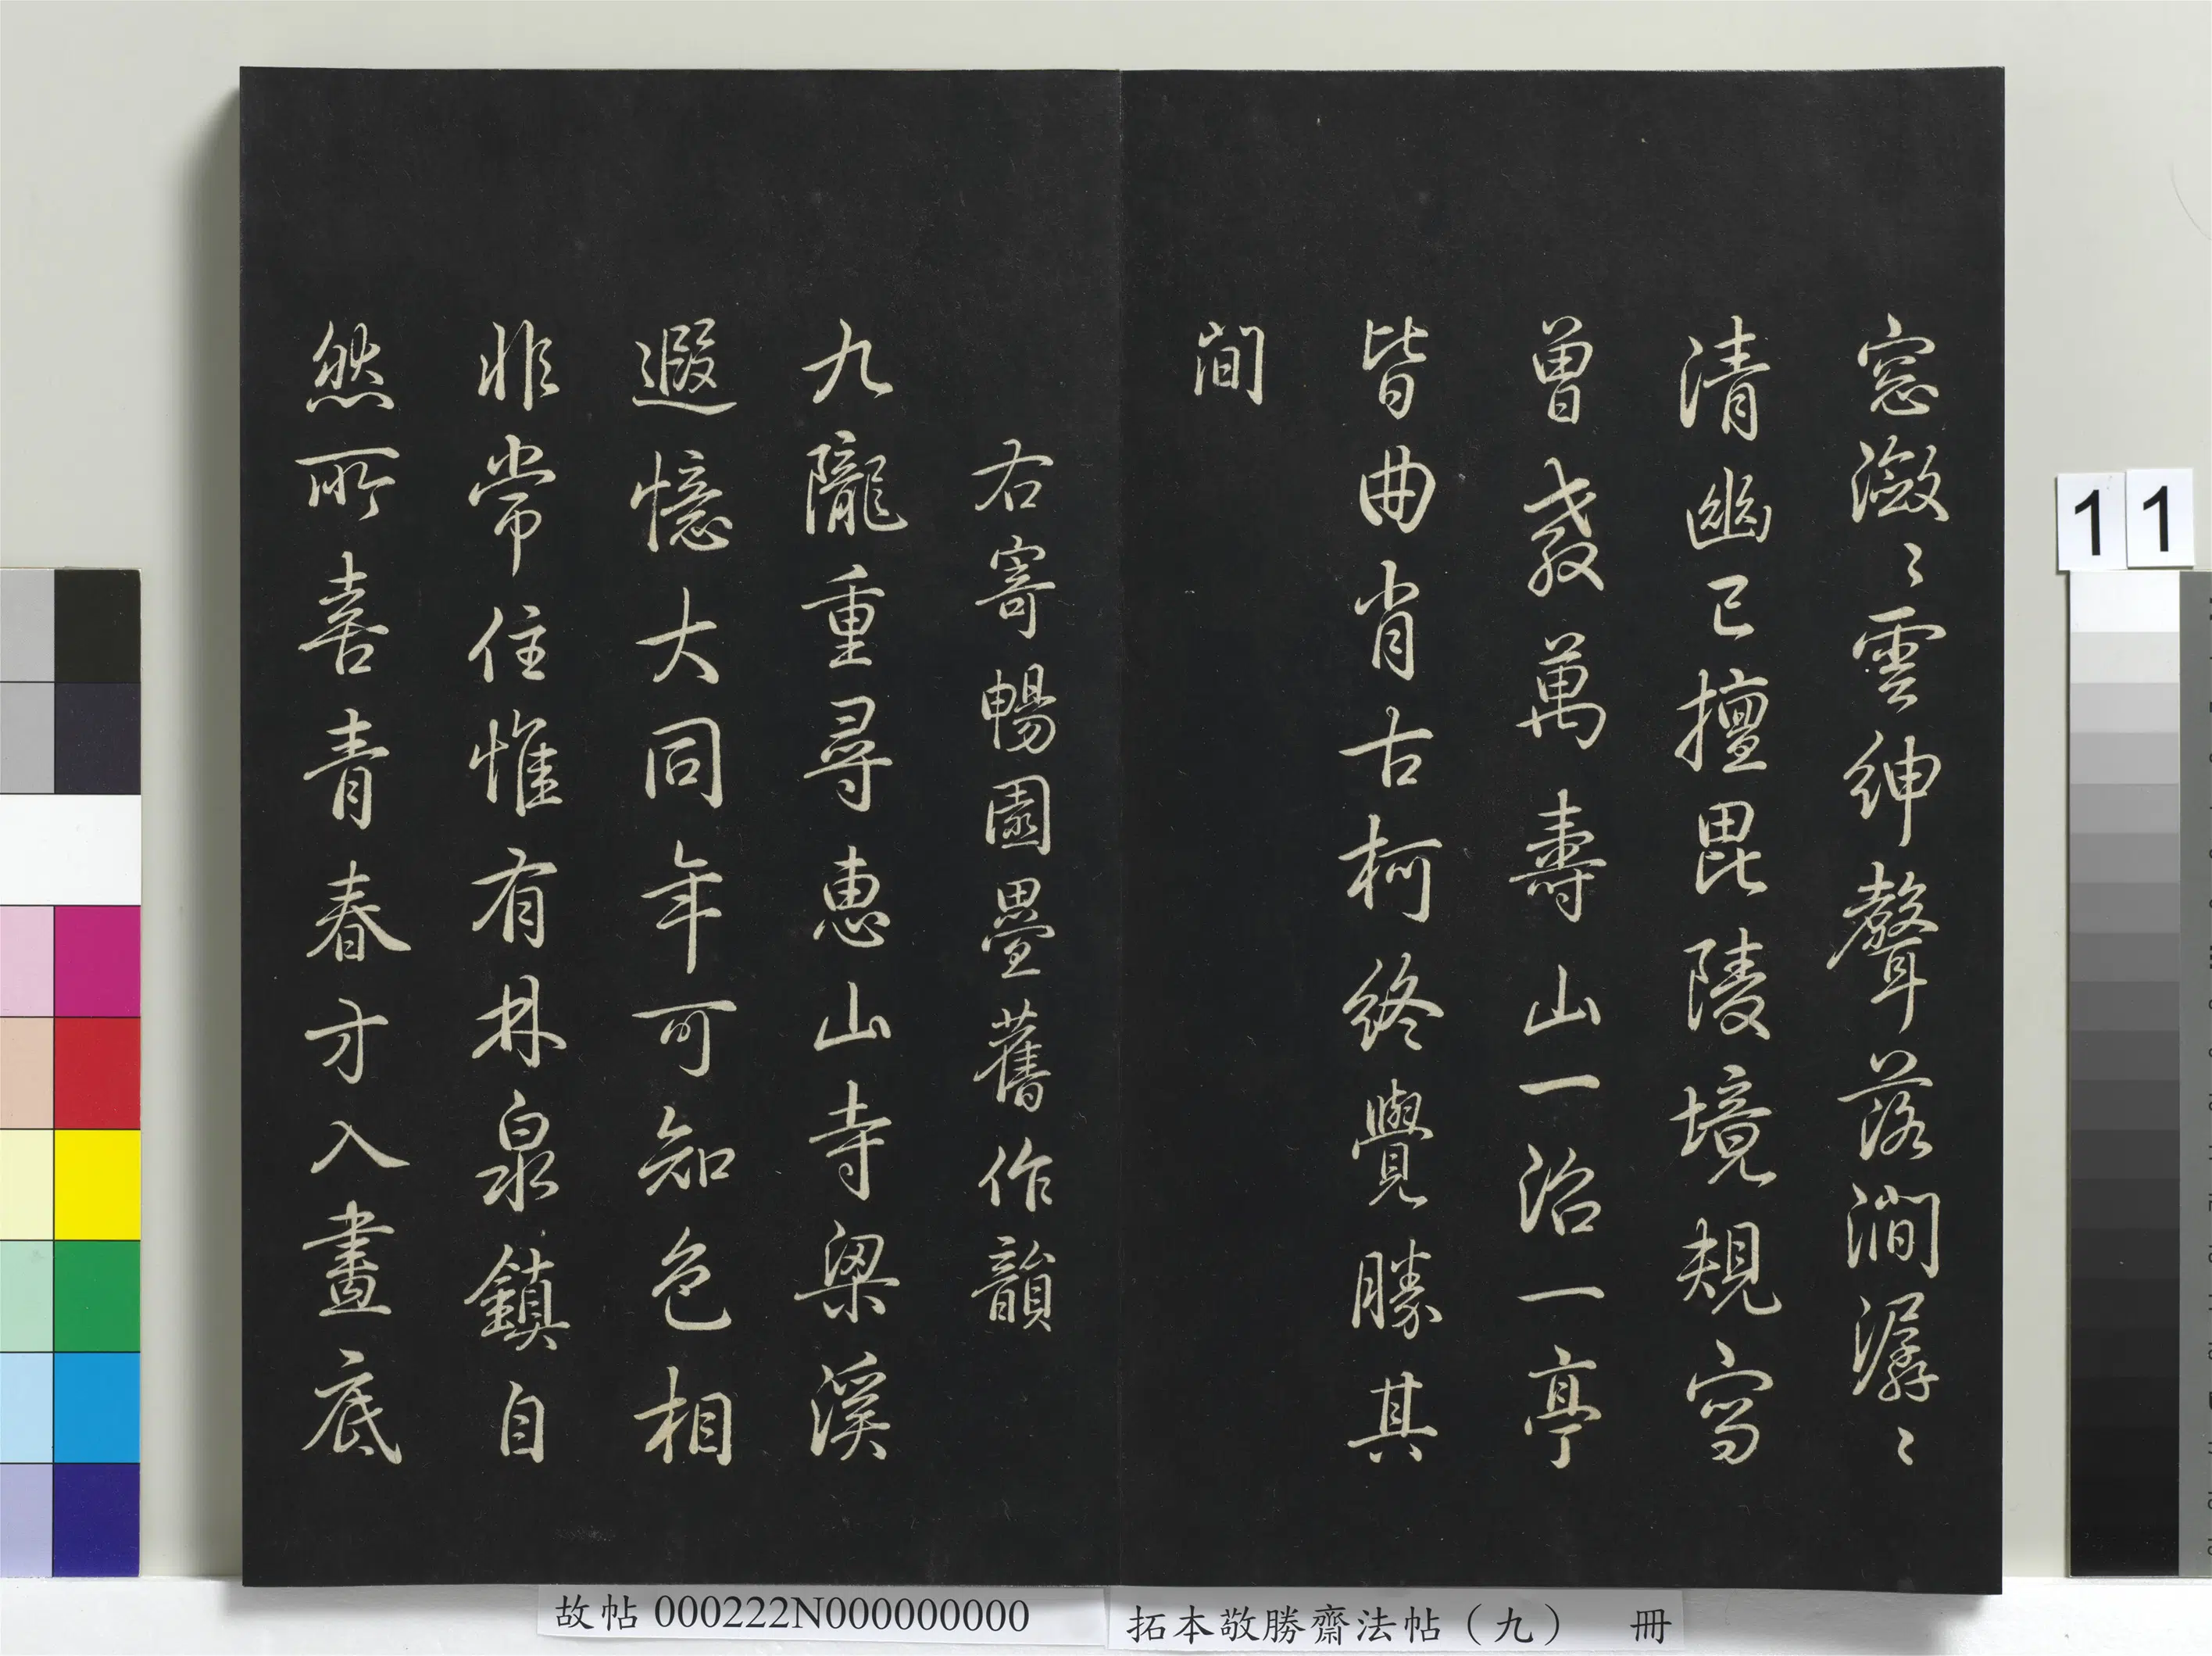 窓瀲〻雲紳聲落澗潺〻
清幽已擅毘陵境規寫
曾教萬壽山一沼一亭
皆曲肖古柯終覺勝其
間
右寄暢園疊舊作韻
九隴重尋惠山寺梁溪
遐憶大同年可知色相
非常住惟有林泉鎮自
然所喜青春方入畫底
11
故帖 000222N000000000
拓本敬勝齋法帖（九） 冊